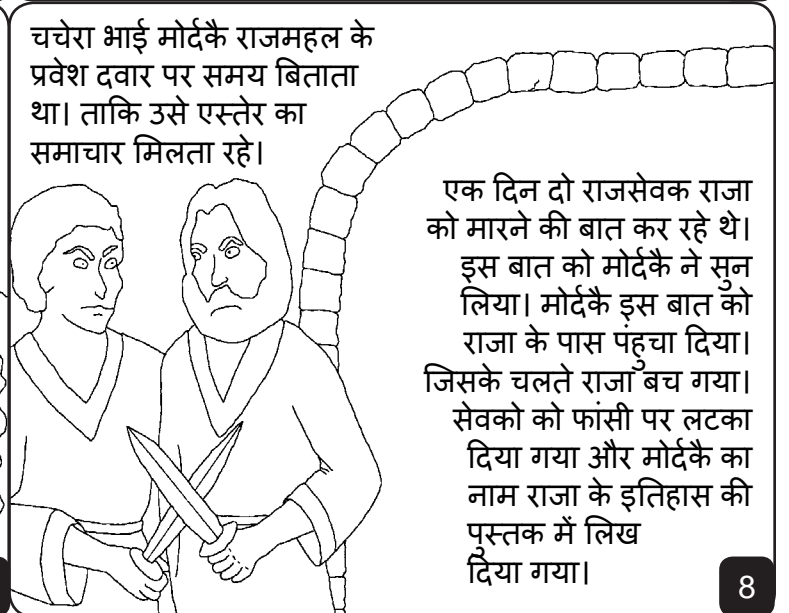 चचेरा भाई मोर्दकै राजमहल के
प्रवेश दवार पर समय बिताता
था। ताकि उसे एस्तेर का
समाचार मिलता रहे।
एक दिन दो राजसेवक राजा
को मारने की बात कर रहे थे।
इस बात को मोर्दकै ने सुन
लिया। मोर्दकै इस बात को
राजा के पास पंहुचा दिया।
जिसके चलते राजा बच गया।
सेवको को फांसी पर लटका
दिया गया और मोर्दकै का
नाम राजा के इतिहास की
पुस्तक में लिख
दिया गया।
8